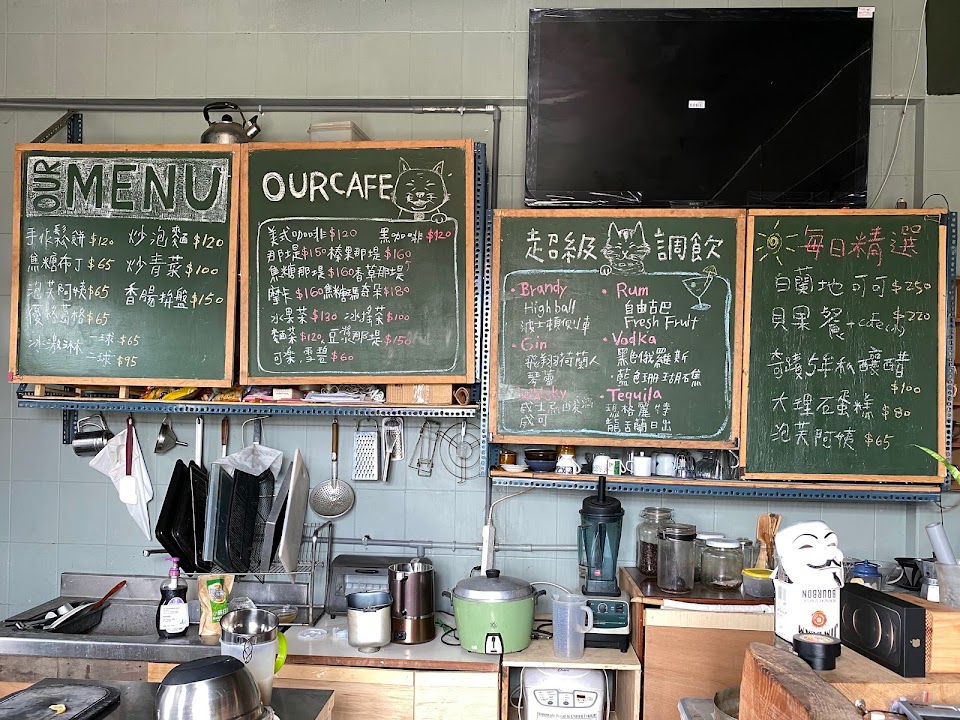 OUR MENU
手作鬆餅 $120 炒泡麵 $120
焦糖布丁 $65 炒青菜 $100
泡芙阿姨 $65 香腸拚盤 $150
$65
冰淇淋 一球 $65
二球 $95
OURCAFE
美式咖啡 $120 黑咖啡 $120
那堤 $150 榛果那堤 $160
焦糖那堤 $160 香草那堤
摩卡 $160 焦糖瑪奇朵 $180
水果茶 $120 冰搖茶 $100
麵茶 $120 豆漿那堤 $150
可樂.雪碧 $60
超級 調飲
• Brandy
Highball
波士頓側車
• Gin
飛翔荷蘭人
琴蕾
• Rum
自由古巴
Fresh Fruit
• Vodka
黑色俄羅斯
• 藍色珊瑚礁
• Tequila
瑪格麗特
龍舌蘭日出
每日精選
白蘭地可可 $250
貝果餐 $220
奇蹟 年私釀醋
$100
大理石蛋糕 $80
泡芙阿姨 $65
BOURBON